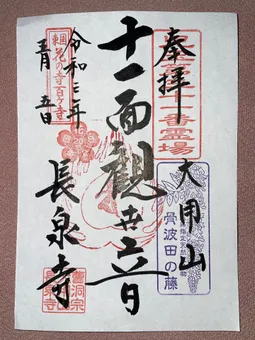 奉拝
大用山
番霊場
骨波田の藤
十一面観世音
令和三年
五月五日
長泉寺
東国花の寺百ヶ寺
曹洞宗
長泉寺